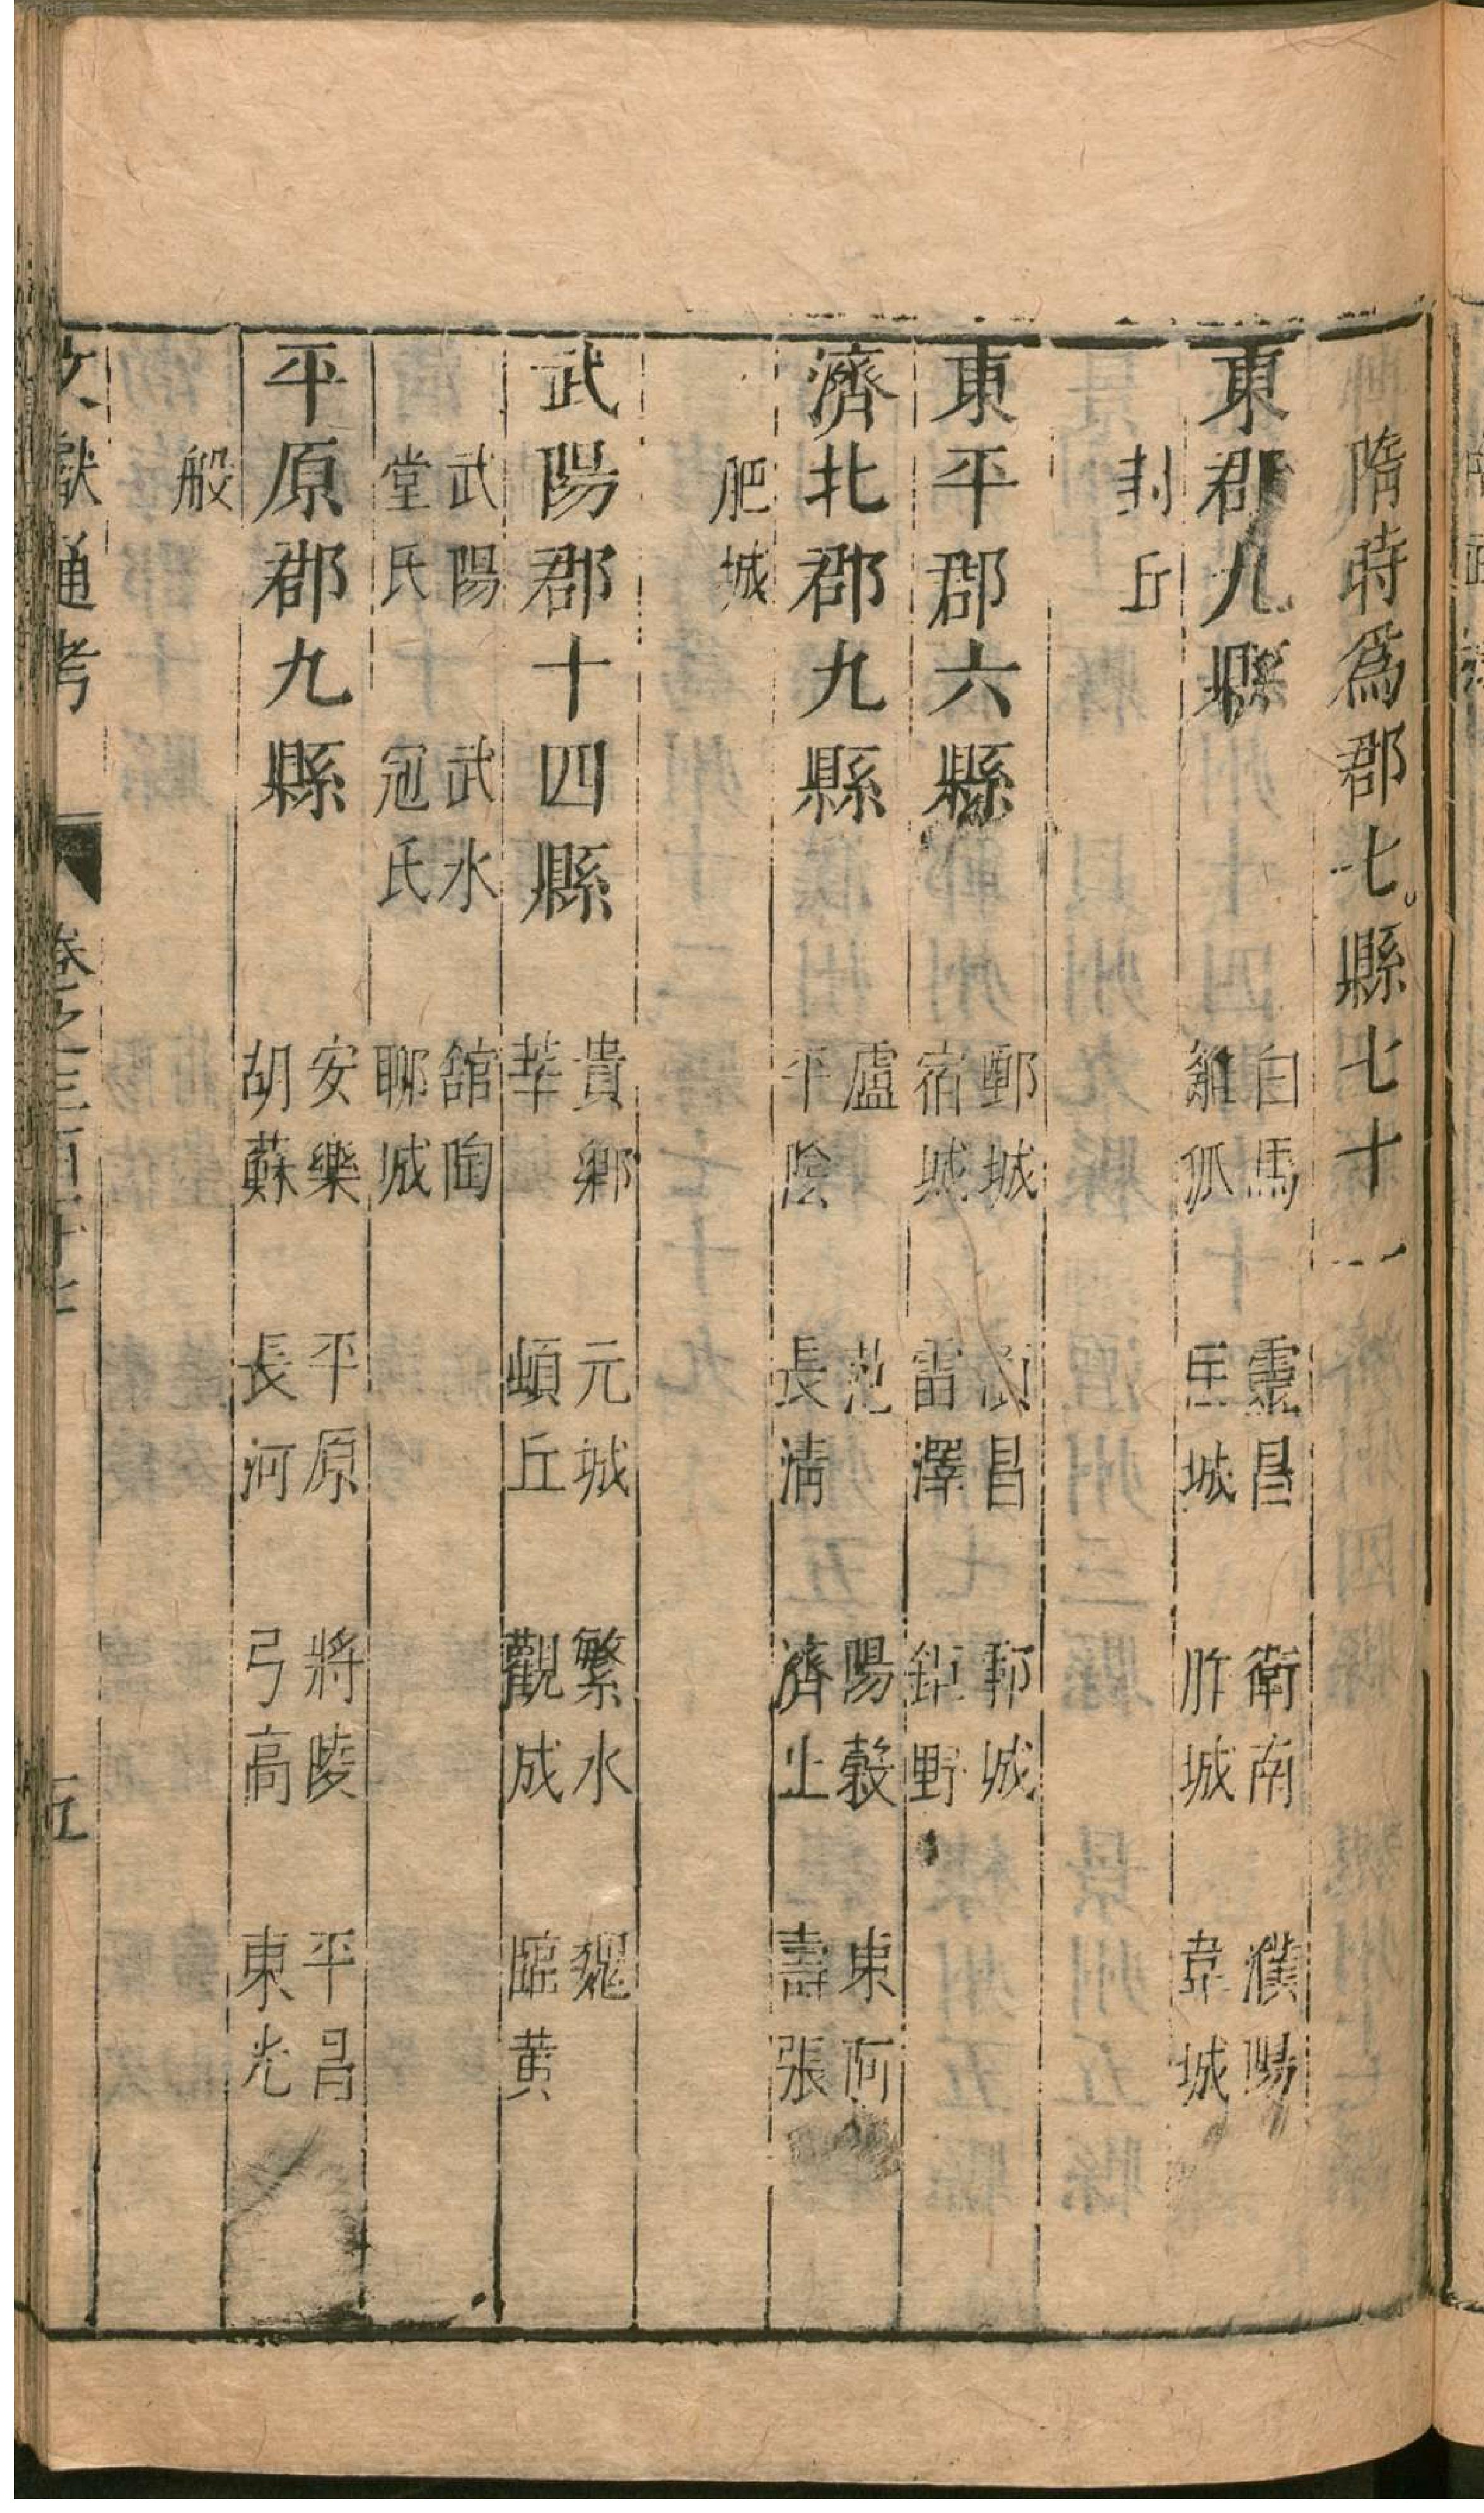 隋時爲郡七縣七十一
東郡九縣 白馬 靈昌 衛南 濮陽
離狐 匡城 胙城 韋城
封丘
東平郡六縣 鄆城 鄄城
宿城 雷澤 鉅野
濟北郡九縣 盧 范 陽穀 東阿
平陰 長清 濟北 壽張
肥城
武陽郡十四縣 貴鄉 元城 繁水 魏
莘 頓丘 觀成 臨黄
武陽 武水 館陶
堂氏 冠氏 聊城
平原郡九縣 安樂 平原 將陵 平昌
胡蘇 長河 弓高 東光
般
文獻通考 卷之三百十七 五